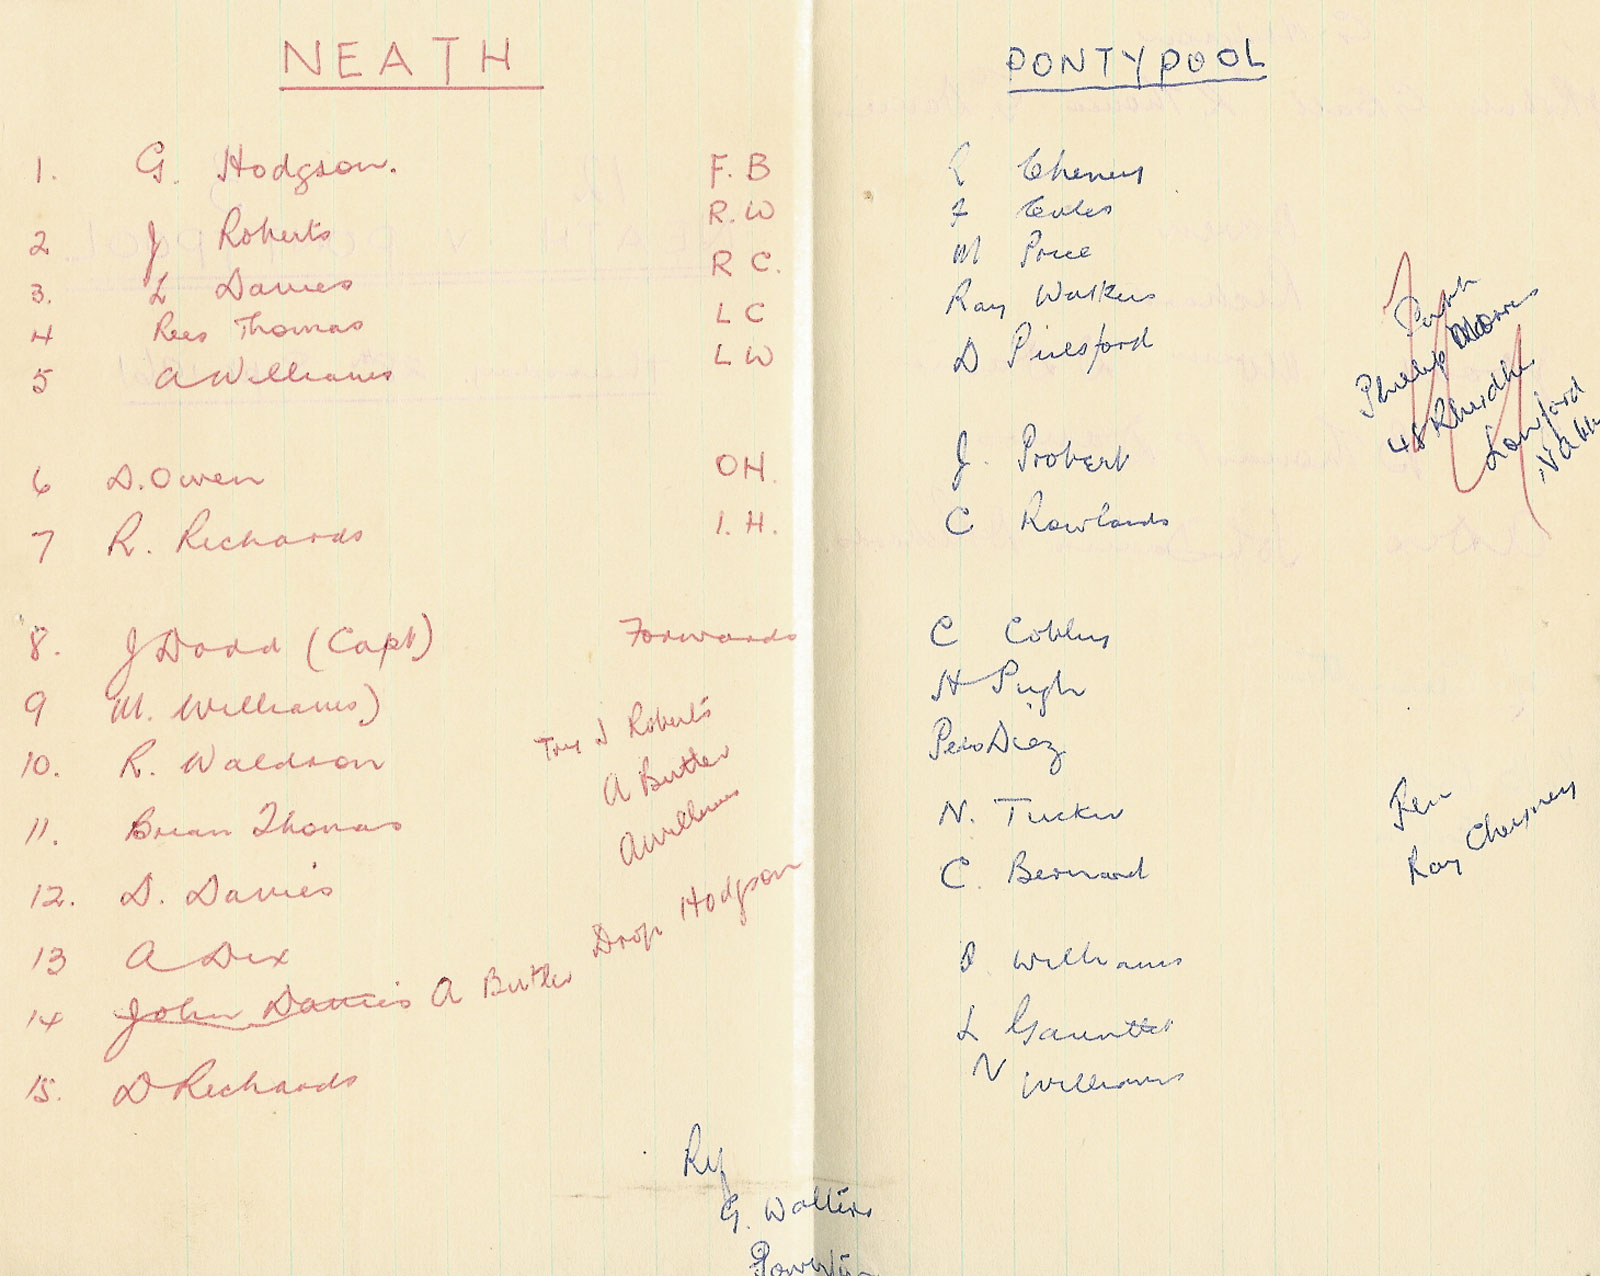 NEATH
PONTYPOOL
1. G. Hodgson. F.B Cheney
2 J Roberts R.W
3. L Davies R C. M Price
4 Rees Thomas L C Ray Watkins
5 A Williams L W D Pulsford
6 D. Owen OH. J. Probert
7 R. Richards I. H. C Rowlands
8. J Dodd (Capt) Forwards C
9 M. Williams) H Pugh
10. R. Waldron Pedro Diez
11. Brian Thomas N. Tucker
12. D. Davies C. Bernard
13 A Dix Williams
14 John Davies A Butler L
15. D Richards N Williams
Try J Roberts
A Butler
A Williams
Drop Hodgson
Philip Morris
48
Pen
Ray Cheyney
Ref
G. Walters